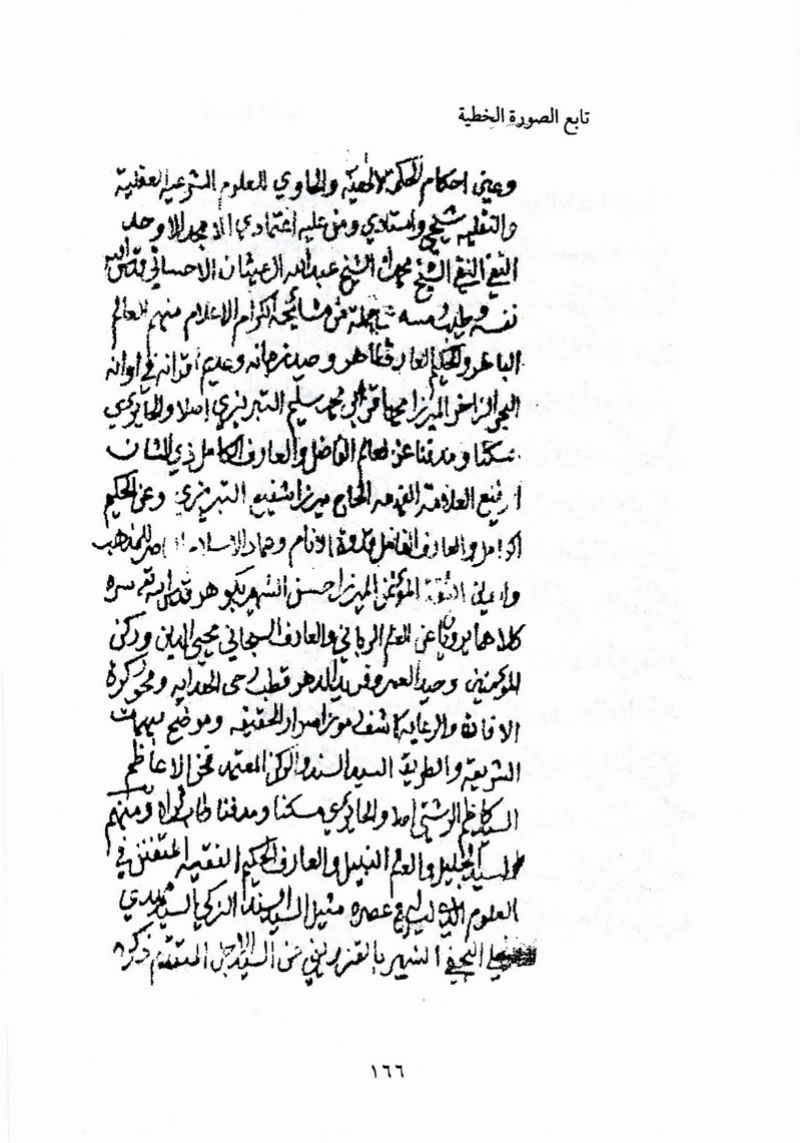 تابع الصورة الخطية
وعيني احكام الحكمة الالهية والحاوي للعلوم الشرعية العقلية
والنقلية شيخي واستادي ومن عليه اعتمادي الامجد الاوحد
التقي النقي الشيخ محمد الشيخ عبد الله العيثان الاحسائي قدس الله
نفسه وطيب رمسه عن مشائخه الكرام الاعلام منهم العالم
الباهر والحكيم العارف الماهر وحيد زمانه وعديم اقرانه في اوانه
البحر الزاخر الميرزا محمد باقر محمد سليم التبريزي اصلا والحايري
مسكنا ومدفنا عن العالم الفاضل والعارف الكامل ذي الشان
الرفيع العلامة الفهامه الحاج ميرزا شفيع التبريزي وعن الحكيم
الكامل والعارف الفاضل قدوة الانام وعماد الاسلام ناصر المذهب
الثقة المؤتمن الميرزا حسن الشهير بكوهر قدس الله سره
كلاهما يرويان عن العالم الرباني والعارف السبحاني محيي الدين وركن
المؤمنين وحيد العصر وفريد الدهر قطب رحى الهدايه ومحور كرة
الافادة والرعايه كاشف رموز اسرار الحقيقه وموضح مبهمات
الشريعة والطريقة السيد السند والركن المعتمد فخر الاعاظم
السيد كاظم الرشتي اصلا والحايري مسكنا ومدفنا طاب ثراه ومنهم
السيد الجليل والعالم النبيل والعارف الحكيم الفقيه المتفنن في
العلوم الذي ليس في عصره مثيل السيد السند الزكي السيد مهدي
النجفي الشهير بالقزويني عن السيد الاجل المتقدم ذكره
١٦٦